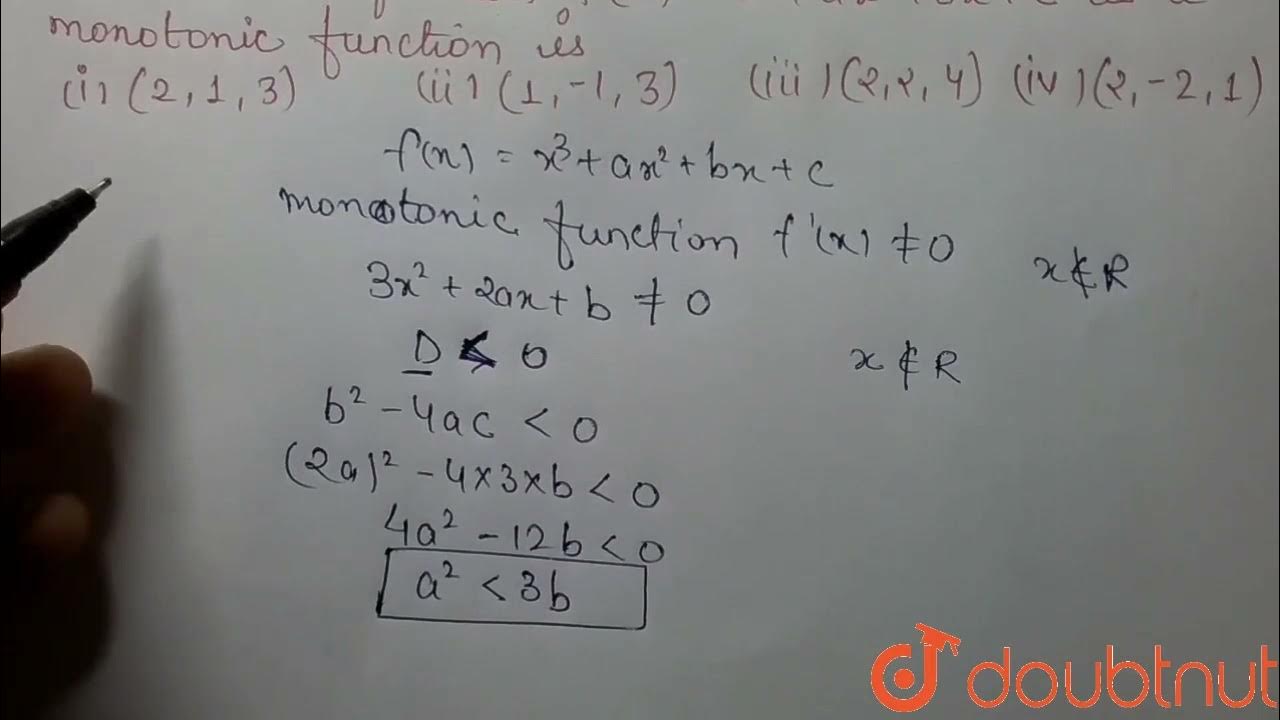 monotonic function is
(i) (2,1,3) (ii) (1,-1,3) (iii) (2,2,4) (iv) (2,-2,1)
f(x) = x³ + ax² + bx + c
monotonic function f'(x) ≠ 0 x ∉ R
3x² + 2ax + b ≠ 0
D < 0 x ∉ R
b² - 4ac < 0
(2a)² - 4×3×b < 0
4a² - 12b < 0
a² < 3b
doubtnut